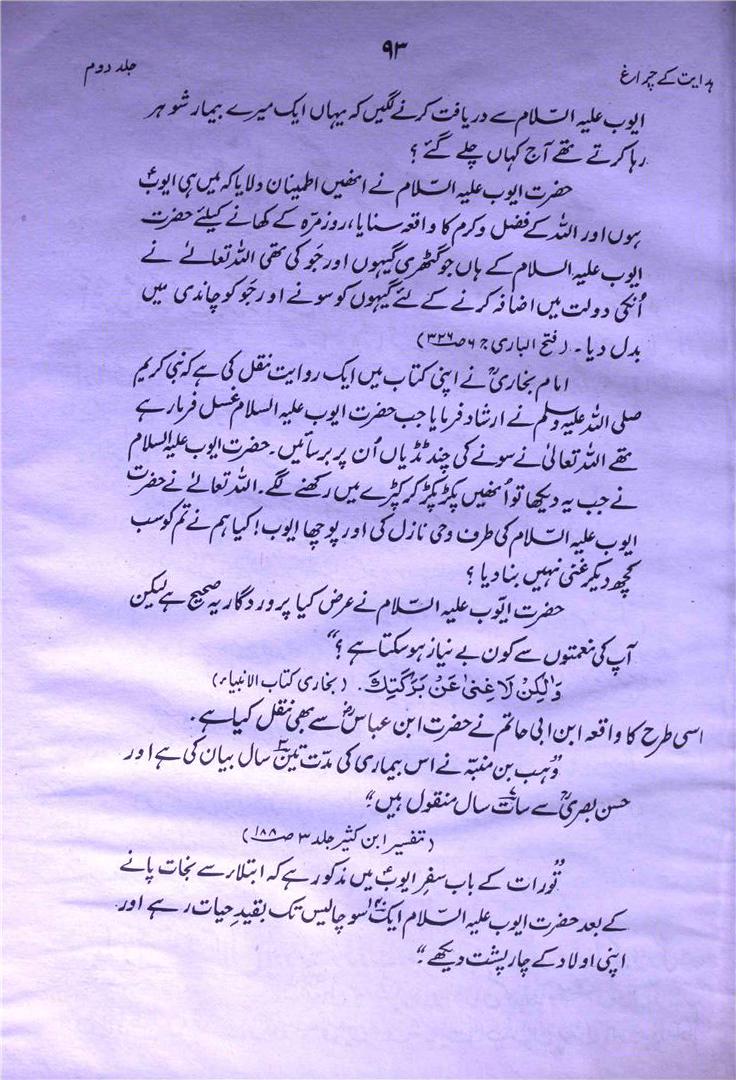 ۹۳
ہدایت کے چراغ
جلد دوم
ایوب علیہ السّلام سے دریافت کرنے لگیں کہ یہاں ایک میرے بیمار شوہر
رہا کرتے تھے آج کہاں چلے گئے ؟
حضرت ایوب علیہ السّلام نے انھیں اطمینان دلایا کہ میں ہی ایوبؑ
ہوں اور اللہ کے فضل و کرم کا واقعہ سنایا، روز مرّہ کے کھانے کیلئے حضرت
ایوب علیہ السلام کے ہاں جو گٹھری گیہوں اور جَو کی تھی اللہ تعالےٰ نے
اُنکی دولت میں اضافہ کرنے کے لئے گیہوں کو سونے اور جَو کو چاندی میں
بدل دیا۔ (فتح الباری ج ۶ ص ۳۲۶)
امام بخاریؒ نے اپنی کتاب میں ایک روایت نقل کی ہے کہ نبی کریم
صلی اللہ علیہ وسلم نے ارشاد فرمایا جب حضرت ایوب علیہ السلام غسل فرما رہے
تھے اللہ تعالیٰ نے سونے کی چند ٹڈیاں اُن پر برسائیں۔ حضرت ایوب علیہ السلام
نے جب یہ دیکھا تو اُنھیں پکڑ پکڑ کر کپڑے میں رکھنے لگے۔ اللہ تعالےٰ نے حضرت
ایوب علیہ السّلام کی طرف وحی نازل کی اور پوچھا ایوب! کیا ہم نے تم کو سب
کچھ دیکر غنی نہیں بنا دیا ؟
حضرت ایّوب علیہ السّلام نے عرض کیا پروردگار یہ صحیح ہے لیکن
آپ کی نعمتوں سے کون بے نیاز ہو سکتا ہے ؟“
وَلٰكِنْ لَا غِنٰى عَنْ بَرَكَتِكَ. (بخاری کتاب الانبیاء)
اسی طرح کا واقعہ ابن ابی حاتم نے حضرت ابن عباسؓ سے بھی نقل کیا ہے.
”وہب بن منبّہ نے اس بیماری کی مدّت تین۳ سال بیان کی ہے اور
حسن بصریؒ سے سات۷ سال منقول ہیں“
(تفسیر ابن کثیر جلد ۳ ص ۱۸۸)
”تورات کے باب سفر ایوبؑ میں مذکور ہے کہ ابتلاء سے نجات پانے
کے بعد حضرت ایوب علیہ السّلام ایک سو چالیس۱۴۰ تک بقیدِ حیات رہے اور
اپنی اولاد کے چار پشت دیکھے۔“